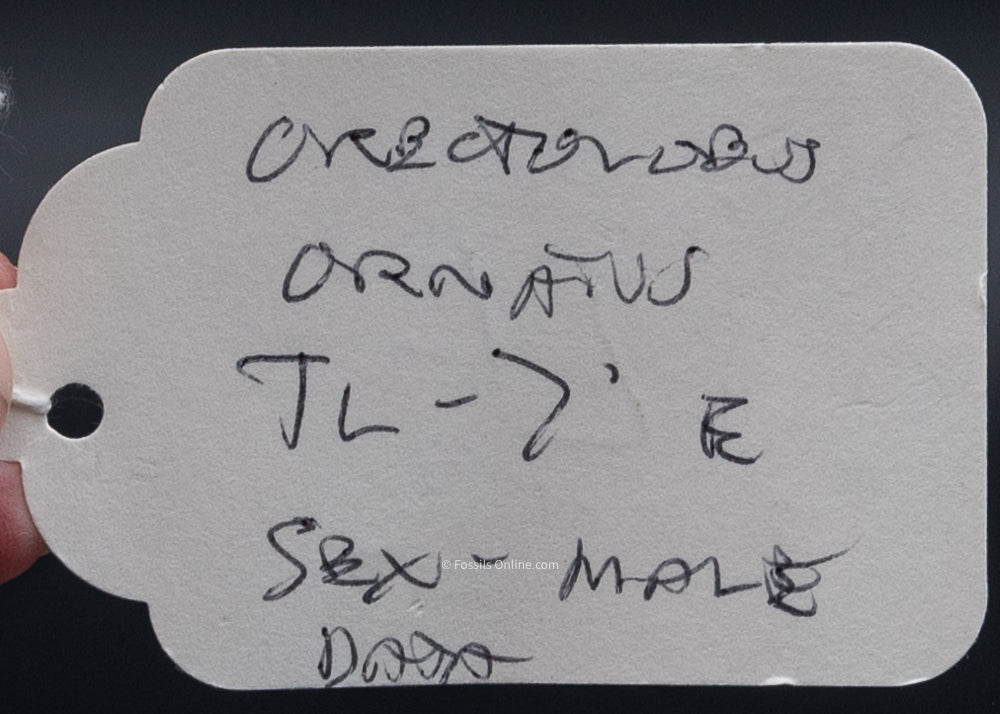 ORECTOLOBUS
ORNATUS
TL - 7' E
SEX - MALE
© Fossils Online.com
DATA